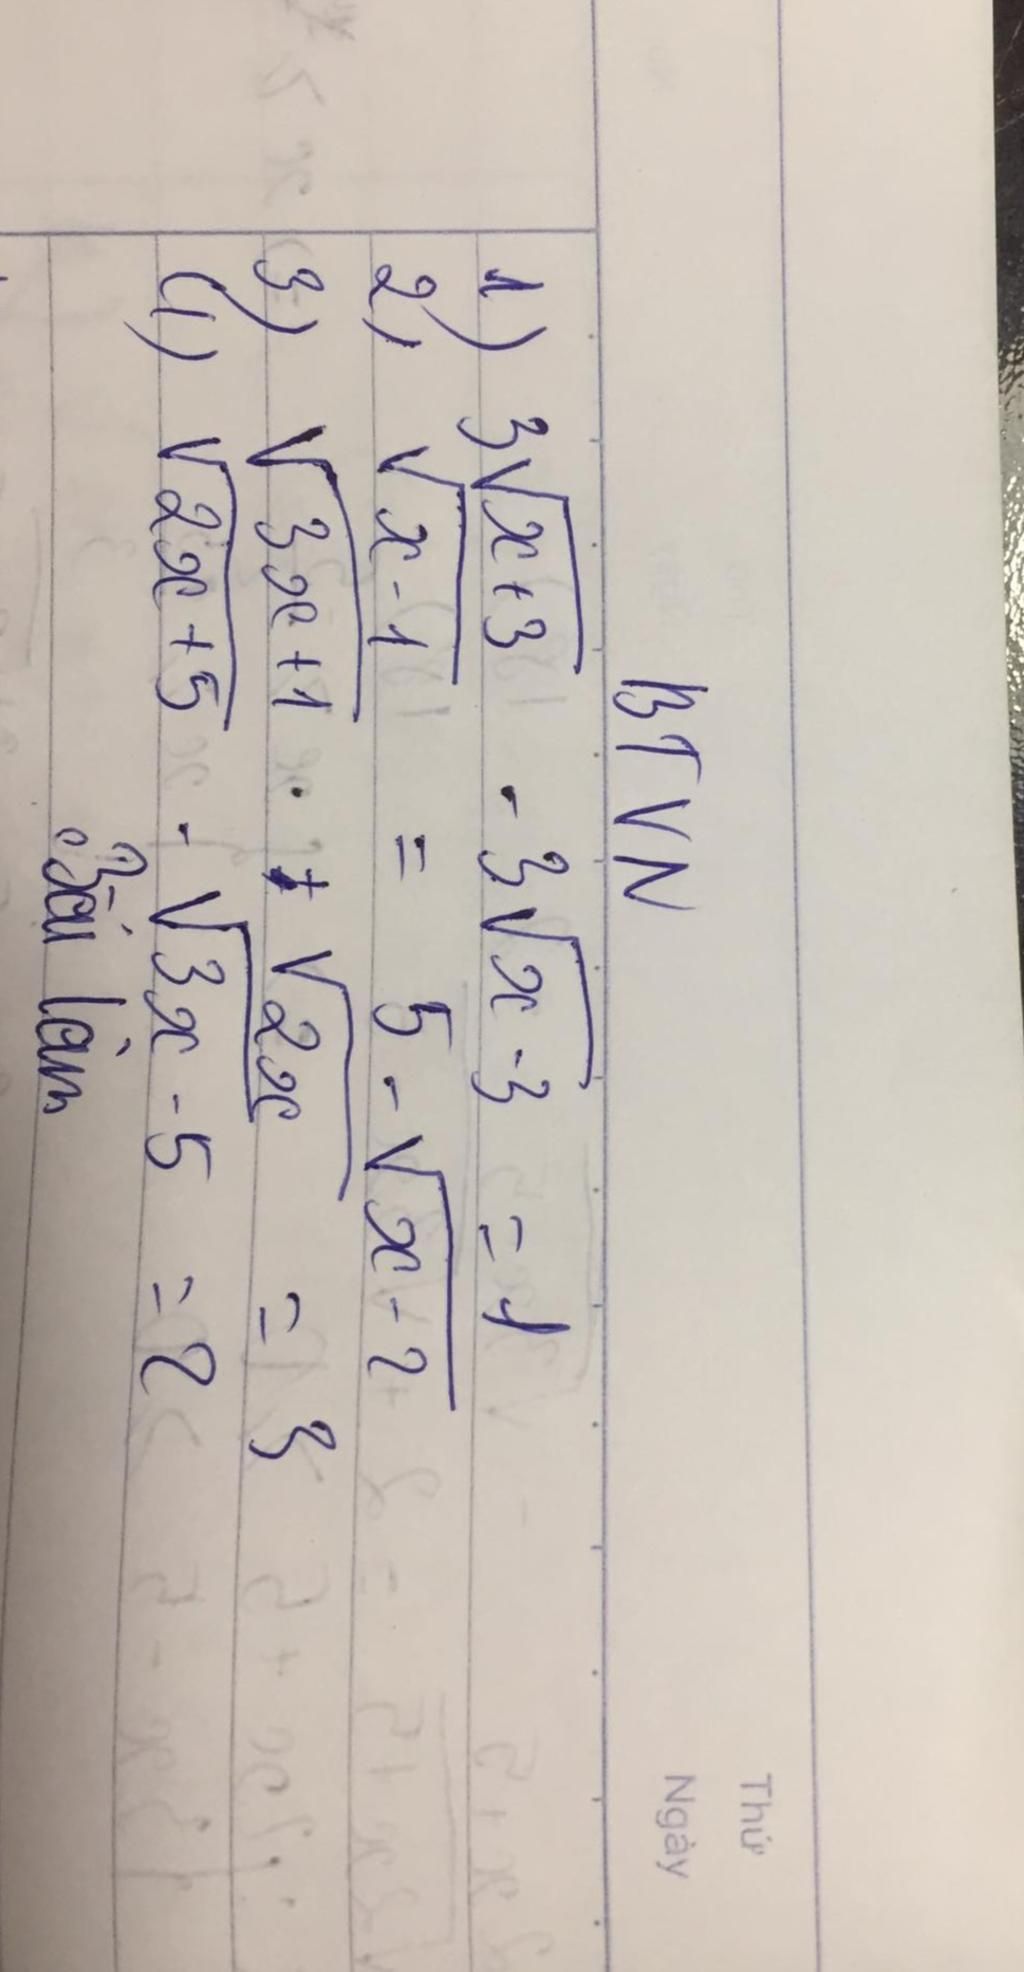 Thứ
Ngày
BTVN
1) 3√x+3 - 3√x-3 = 1
2) √x-1 = 5 - √x-2
3) √3x+1 + √2x = 3
4) √2x+5 - √3x-5 = 2
Bài làm